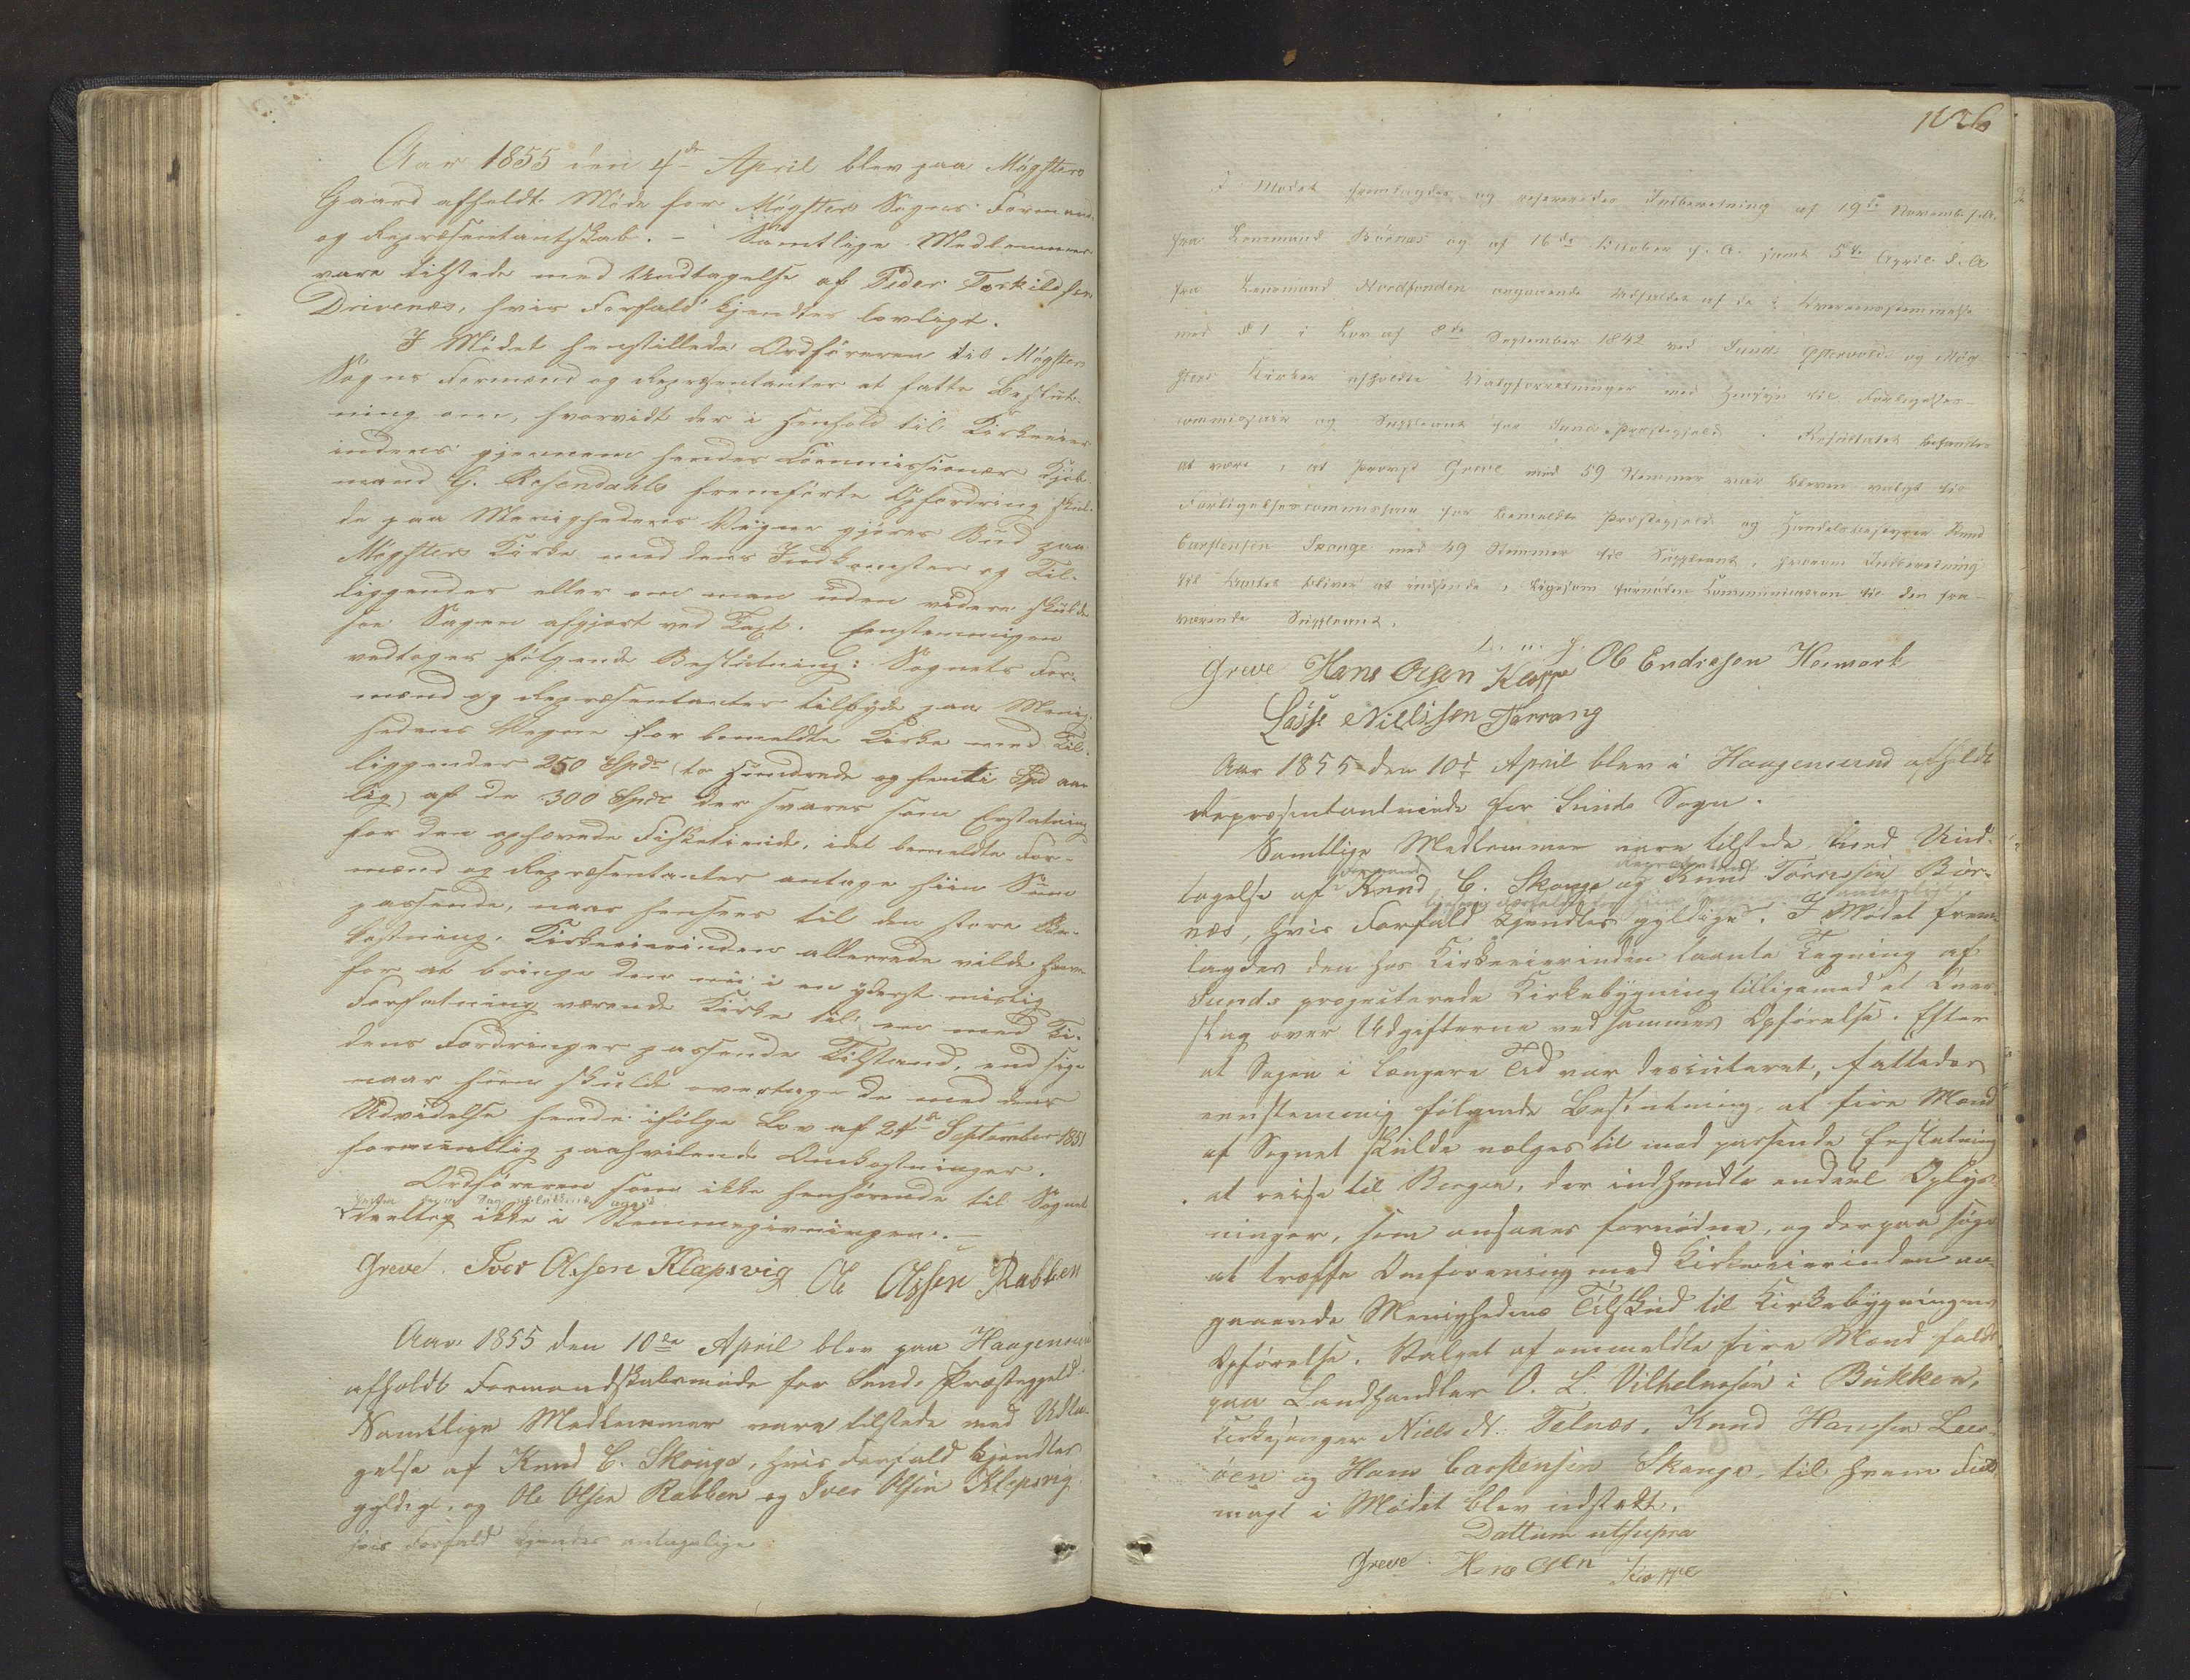 Aar 1855 den 4de April blev paa Møgsters
Gaard afholdt Møde for Møgsters Sogns Formand-
og Repræsentantskab. – Samtlige Medlemmer
vare tilstede med Undtagelse af Peder Torkildsen
Drivenæs, hvis Forfald kjendtes lovligt.
I Mødet henstillede Ordføreren til Møgsters
Sogns Formænd og Repræsentanter at fatte Beslut-
ning om, hvorvidt der i Henhold til Kirkeeier
indens gjennem hendes Commissionær Kjøb-
mand G. Rosendahls fremførte Opfordring skul-
de paa Menighedens Vegne gjøres Bud paa
Møgsters Kirke med dens Indkomster og Til-
liggender eller om man uden videre skulde
see Sagen afgjort ved Taxt. Eenstemmigen
vedtoges følgende Beslutning: Sognets For-
mænd og Repræsentanter tilbyde paa Menig-
hedens Vegne for bemeldte Kirke med Til-
liggender 250 Spdr (to Hundrede og femti Spd aar-
lig) af de 300 Spdr der svares som Erstatning
for den ophævede Fisketiende, idet bemeldte For-
mænd og Repræsentanter antage hiin Sum
passende, naar hensees til den store Be-
kostning, Kirkeeierinden allerede vilde have
for at bringe den nu i en yderst mislig
Forfatning værende Kirke til en med Ti-
dens Fordringer passende Tilstand, end sige
naar hun skulde overtage de med dens
Udvidelse hende ifølge Lov af 24de September 1851
formentlig paahvilende Omkostninger.
Ordføreren som ikke henhørende til Sognet
deeltog ikke i Stemmegivningen. –
Greve. Iver Olssen Klepsvig Ole Olssen Rabben
Aar 1855 den 10de April blev paa Haagensund
afholdt Formandskabsmøde for Sunds Præstegjeld.
Samtlige Medlemmer vare tilstede med Udta-
gelse af Knud C. Skouge, hvis Forfald kjendtes
gyldigt, og Ole Olsen Rabben og Iver Olsen Klepsvig
hvis Forfald kjendes antagelige
126
I Mødet fremlagdes og refereredes Indberetning af 19de Novemb. f. A.
fra Lensmand Børnæs og af 16de October f. A. samt 5te April d. A.
fra Lensmand Nordfonden angaaende Udfaldet af de i Overeensstemmelse
med § 1 i Lov af 8de September 1842 ved Sunds Østervolds og Møg-
sters Kirker afholdte Valgforretninger med Hensyn til Forligelses-
commissair og Suppleant for Sunds Præstegjeld. Resultatet befandtes
at være, at Provst Greve med 59 Stemmer var bleven valgt til
Forligelsescommissair for bemeldte Præstegjeld og Handelsbestyrer Knud
Carstensen Skouge med 49 Stemmer til Suppleant, hvorom Indberetning
til Amtet bliver at indsende, ligesom fornøden Communication til den fra-
værende Suppleant.
D. u. s.
Greve Hans Olsen Kleppe Ole Endresen Heimark
Lasse Nielssen Tørrang
Aar 1855 den 10d April blev i Haagensund afholdt
Repræsentantmøde for Sunds Sogn.
Samtlige Medlemmer vare tilstede, med Und-
Formand Repræsentant
tagelse af Knud C. Skouge og Knud Tørresen Bør-
næs, hvis Forfald kjendtes gyldigt. I Mødet frem-
lagdes den hos Kirkeeierinden laante Tegning af
Sunds projecterede Kirkebygning tilligemed et Over-
slag over Udgifterne ved sammes Opførelse. Efter
at Sagen i længere Tid var descuteret, fattedes
eenstemmig følgende Beslutning, at fire Mænd
af Sognet skulde vælges til mod passende Erstatning
at reise til Bergen, der indhendte endeel Oplys-
ninger, som ansaaes fornødne, og derpaa søge
at træffe Omforening med Kirkeeierinden an-
gaaende Menighedens Tilskud til Kirkebygningens
Opførelse. Valget af ommeldte fire Mænd faldt
paa Landhandler O. L. Vilhelmsen i Bukken,
Kirkesanger Niels N. Telnæs, Knud Hansen Leer-
øen og Hans Carstensen Skouge, til hvem Fuld-
magt i Mødet blev udstedt.
Dattum utsupra
Greve Hans Olsen Kleppe